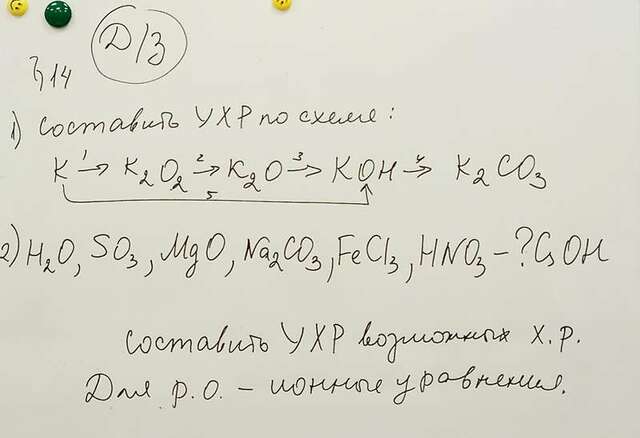 Д/З
§14
1) Составить УХР по схеме:
K →¹ K₂O₂ →² K₂O →³ KOH →⁴ K₂CO₃
5
2) H₂O, SO₃, MgO, Na₂CO₃, FeCl₃, HNO₃ – ? CsOH
Составить УХР возможных х.р.
Для р.о. – ионные уравнения.